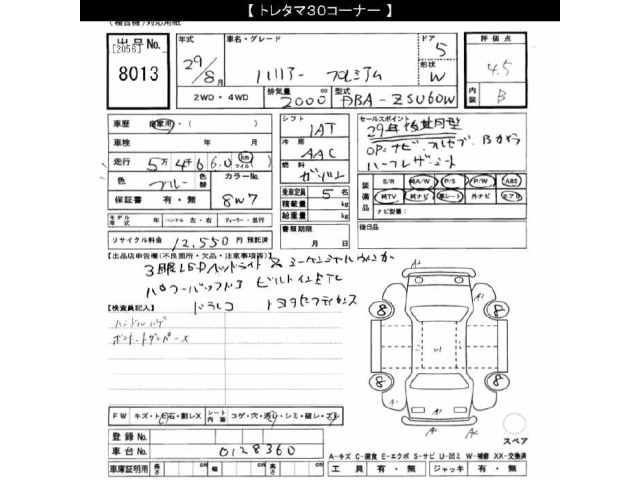 【 トレタマ30コーナー 】
(複合機)対応用紙
出品No.
[2056]
8013
年式
29/8月
車名・グレード
ハリアー プレミアム
ドア
5
形状
W
評価点
4.5
内装
B
2WD・4WD
排気量
2000 cc
型式
DBA-ZSU60W
車歴 自家用・( )
車検 年 月
走行 5万4千660 km マイル
色 ブルー 色替
カラーNo. 8W7
保証書 有・無
モデル年式 年 ハンドル 左・右 ディーラー・並行
リサイクル料金 12,550 円 預託済
シフト
IAT
冷房
AAC
燃料
ガソリン
乗車定員 5 名
積載量 kg
総重量 kg
書類期限
月 日
セールスポイント
29年後期型
OP.ナビ・フルセグ・Bカメラ
ハーフレザーシート
装備品
S/R 純A/W P/S P/W ABS
純TV 純ナビ 革シート 外ナビ エアB
ナビ型番:
後日品
【出品店申告欄(不良箇所・欠品・注意事項等)】
3眼LEDヘッドライト & シーケンシャルウィンカー
パワーバックドア ビルトインETC
ドラレコ トヨタセーフティセンス
【検査員記入】
ハンドルハゲ
FW キズ・ト・石・割レX
シート内張 コゲ・穴・汚レ・シミ・破レ・スレ
登録No.
車台No. 0128360
車庫証明用 長さ cm 幅 cm 高さ cm
A1
A1
8
8
8
8
A1
A2
スペア
A-キズ C-腐食 E-エクボ S-サビ U-凹ミ W-補修 XX-交換済
工具 有・無 ジャッキ 有・無